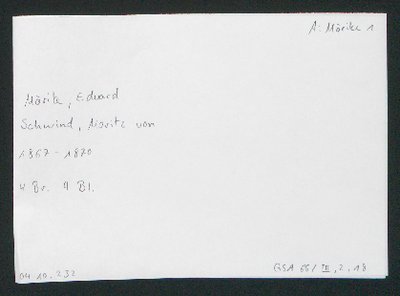 A: Mörike 1
Mörike, Eduard
Schwind, Moritz von
1867 - 1870
4 Br. 9 Bl.
04.10.232
GSA 66/ III, 2, 18